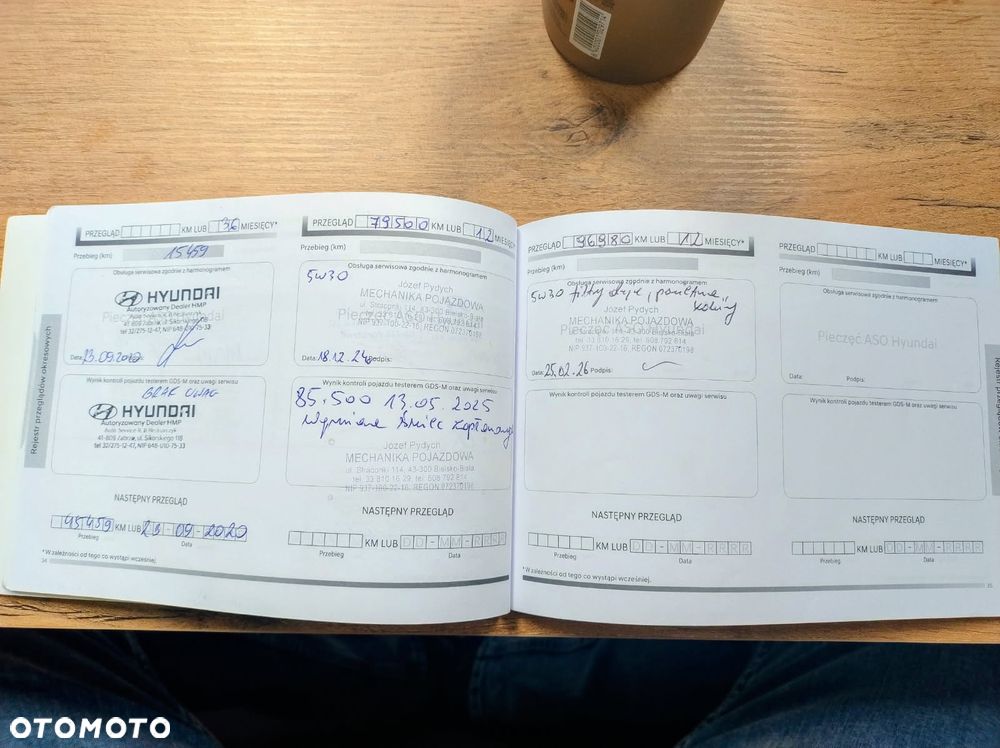 PRZEGLĄD KM LUB 36 MIESIĘCY*
Przebieg (km) 15459
Obsługa serwisowa zgodnie z harmonogramem
HYUNDAI
Autoryzowany Dealer HMP
41-809 Zabrze, ul. Sikorskiego 118
tel 32/275-12-47, NIP 648-010-75-33
Data:
Wynik kontroli pojazdu testerem GDS-M oraz uwagi serwisu
BRAK UWAG
HYUNDAI
Autoryzowany Dealer HMP
41-809 Zabrze, ul. Sikorskiego 118
tel 32/275-12-47, NIP 648-010-75-33
NASTĘPNY PRZEGLĄD
45459 KM LUB 23-09-2020
Przebieg Data
*W zależności od tego co wystąpi wcześniej.
34
Rejestr przeglądów okresowych
PRZEGLĄD 79500 KM LUB 12 MIESIĘCY*
Przebieg (km)
Obsługa serwisowa zgodnie z harmonogramem
5W30
Józef Pydych
MECHANIKA POJAZDOWA
NIP 937-100-22-16, REGON 072370198
Data: 18.12.24 Podpis:
Wynik kontroli pojazdu testerem GDS-M oraz uwagi serwisu
85.500 13.05.2025
Wymiana świec zapłonowych
Józef Pydych
MECHANIKA POJAZDOWA
ul. Straconki 114, 43-300 Bielsko-Biała
tel. 33 810 16 29, tel. 608 792 814
NIP 937-100-22-16, REGON 072370198
NASTĘPNY PRZEGLĄD
KM LUB DD-MM-RRRR
Przebieg Data
PRZEGLĄD 96980 KM LUB 12 MIESIĘCY*
Przebieg (km)
Obsługa serwisowa zgodnie z harmonogramem
5W30 filtry
Józef Pydych
MECHANIKA POJAZDOWA
Pieczęć ASO Hyundai
tel. 33 810 16 29, tel. 608 792 814
NIP 937-100-22-16, REGON 072370198
Data: 25.02.26 Podpis:
Wynik kontroli pojazdu testerem GDS-M oraz uwagi serwisu
NASTĘPNY PRZEGLĄD
KM LUB DD-MM-RRRR
Przebieg Data
*W zależności od tego co wystąpi wcześniej.
PRZEGLĄD KM LUB MIESIĘCY*
Przebieg (km)
Obsługa serwisowa zgodnie z harmonogramem
Pieczęć ASO Hyundai
Data: Podpis:
Wynik kontroli pojazdu testerem GDS-M oraz uwagi serwisu
NASTĘPNY PRZEGLĄD
KM LUB DD-MM-RRRR
Przebieg Data
35
OTOMOTO